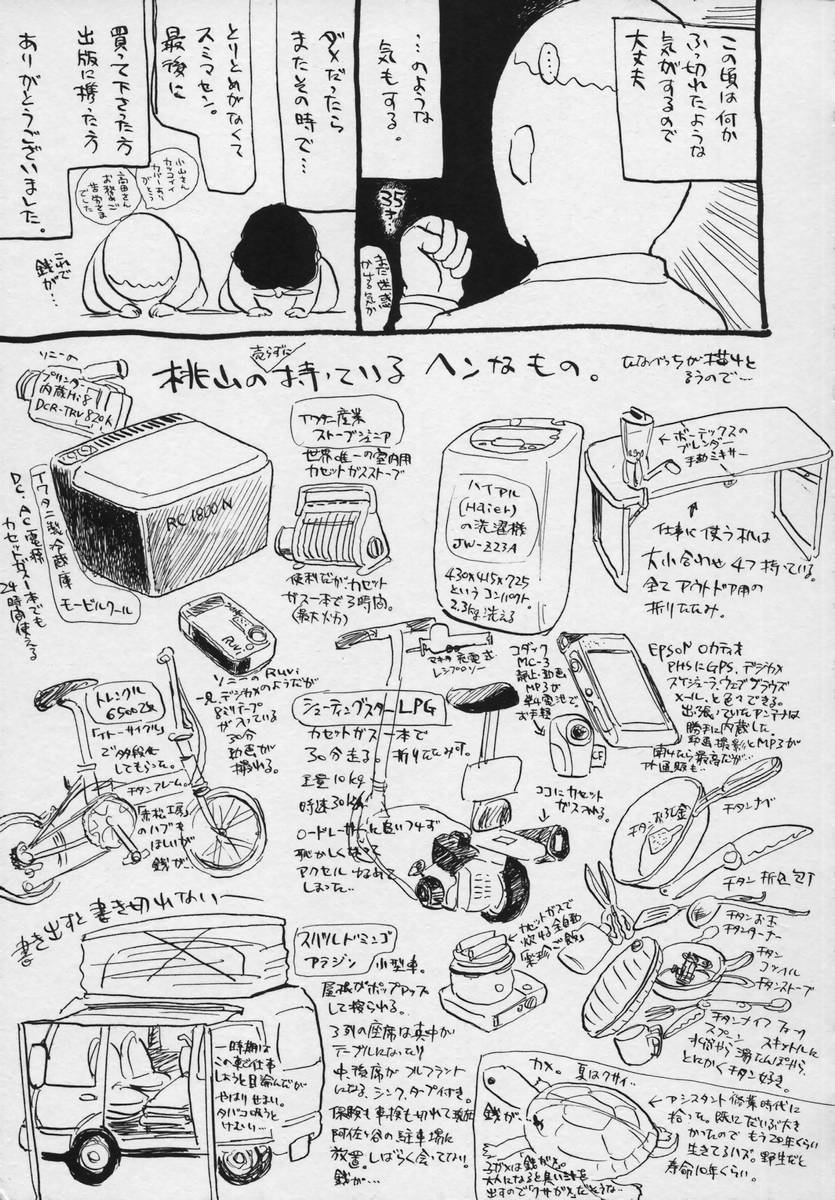 この頃は何か
ふっ切れたような
気がするので
大丈夫
…のような
気もする。
35才…
まだ惑
かける気か
ダメだったら
またその時で…
とりとめがなくて
スミマセン。
最後に
買って下さった方
出版に携った方
ありがとうございました。
小山さん
カッコイイ
カバーあり
がとう
高田さん
お疲れ
さま
でした
これで
銭が…
桃山の売らずに持っているヘンなもの。
ソニーの
プリンター
内蔵Hi8
DCR-TRV820K
イワタニ製冷蔵庫
モービルクール
DC、AC電源
カセットガス一本でも
24時間使える
RC1800N
イワタニ産業
ストーブジュニア
世界唯一の室内用
カセットガスストーブ
便利だがカセット
ガス一本で3時間。
(最大火力)
ハイアル
(Haier)
の洗濯機
JW-Z23A
430×415×725
というコンパクト。
2.3kg洗える
←ボーテックスの
ブレンダー
手動ミキサー
仕事に使う机は
大小合わせ4つ持っている。
全てアウトドア用の
折りたたみ。
Ruvi
ソニーのRuvi
一見、デジカメのようだが
8ミリテープ
が入っている
30分
動画が
撮れる。
トレンクル
6500改
「イトーサイクル」
で多段化
してもらった。
チタンフレーム。
「赤松工房」
のハブも
ほしいが
銭が…
マキタ充電式
レシプロソー
シューティングスターLPG
カセットガス一本で
30分走る。折りたたみ可。
重量10kg
時速30km
ロードレーサーに追いつけず
恥かしくなって
アクセルゆるめて
しまった…
コダック
MC-3
静止・動画
MP3が
単4電池で
お手軽
CF
ココにカセット
ガス入れる。
EPSON ロカティオ
PHSにGPS、デジカメ
スケジューラ、ウェブブラウズ
メールと色々できる。
出っ張っていたアンテナは
勝手に内蔵した。
動画撮影とMP3が
聞けたら最高だが…
チタンおろし金
チタンナベ
チタン折込包丁
チタンお玉
チタンターナー
チタン
コッヘル
チタンストーブ
チタンナイフ フォーク
スプーン スキットルに
水筒から湯たんぽから、
とにかくチタン好き。
カセットガスで
炊ける全自動
書き出すと書き切れない──
スバルドミンゴ
アラジン 小型車。
屋根がポップアップ
して捨られる。
3列の座席は真中が
テーブルになったり
中、後席がフルフラット
になる、シンク、タープ付き。
保険も車検も切れて現在
阿佐ヶ谷の駐車場に
放置。しばらく会ってない。
銭が…
一時期は
この車で仕事
しようと目論んだが
やはりせまい。
タバコ吸うと
けむい…
カメ。夏はクサイ
銭が…
アシスタント修業時代に
拾った。既にだいぶ大き
かったのでもう20年くらい
生きてるハズ。野生だと
寿命10年くらい。